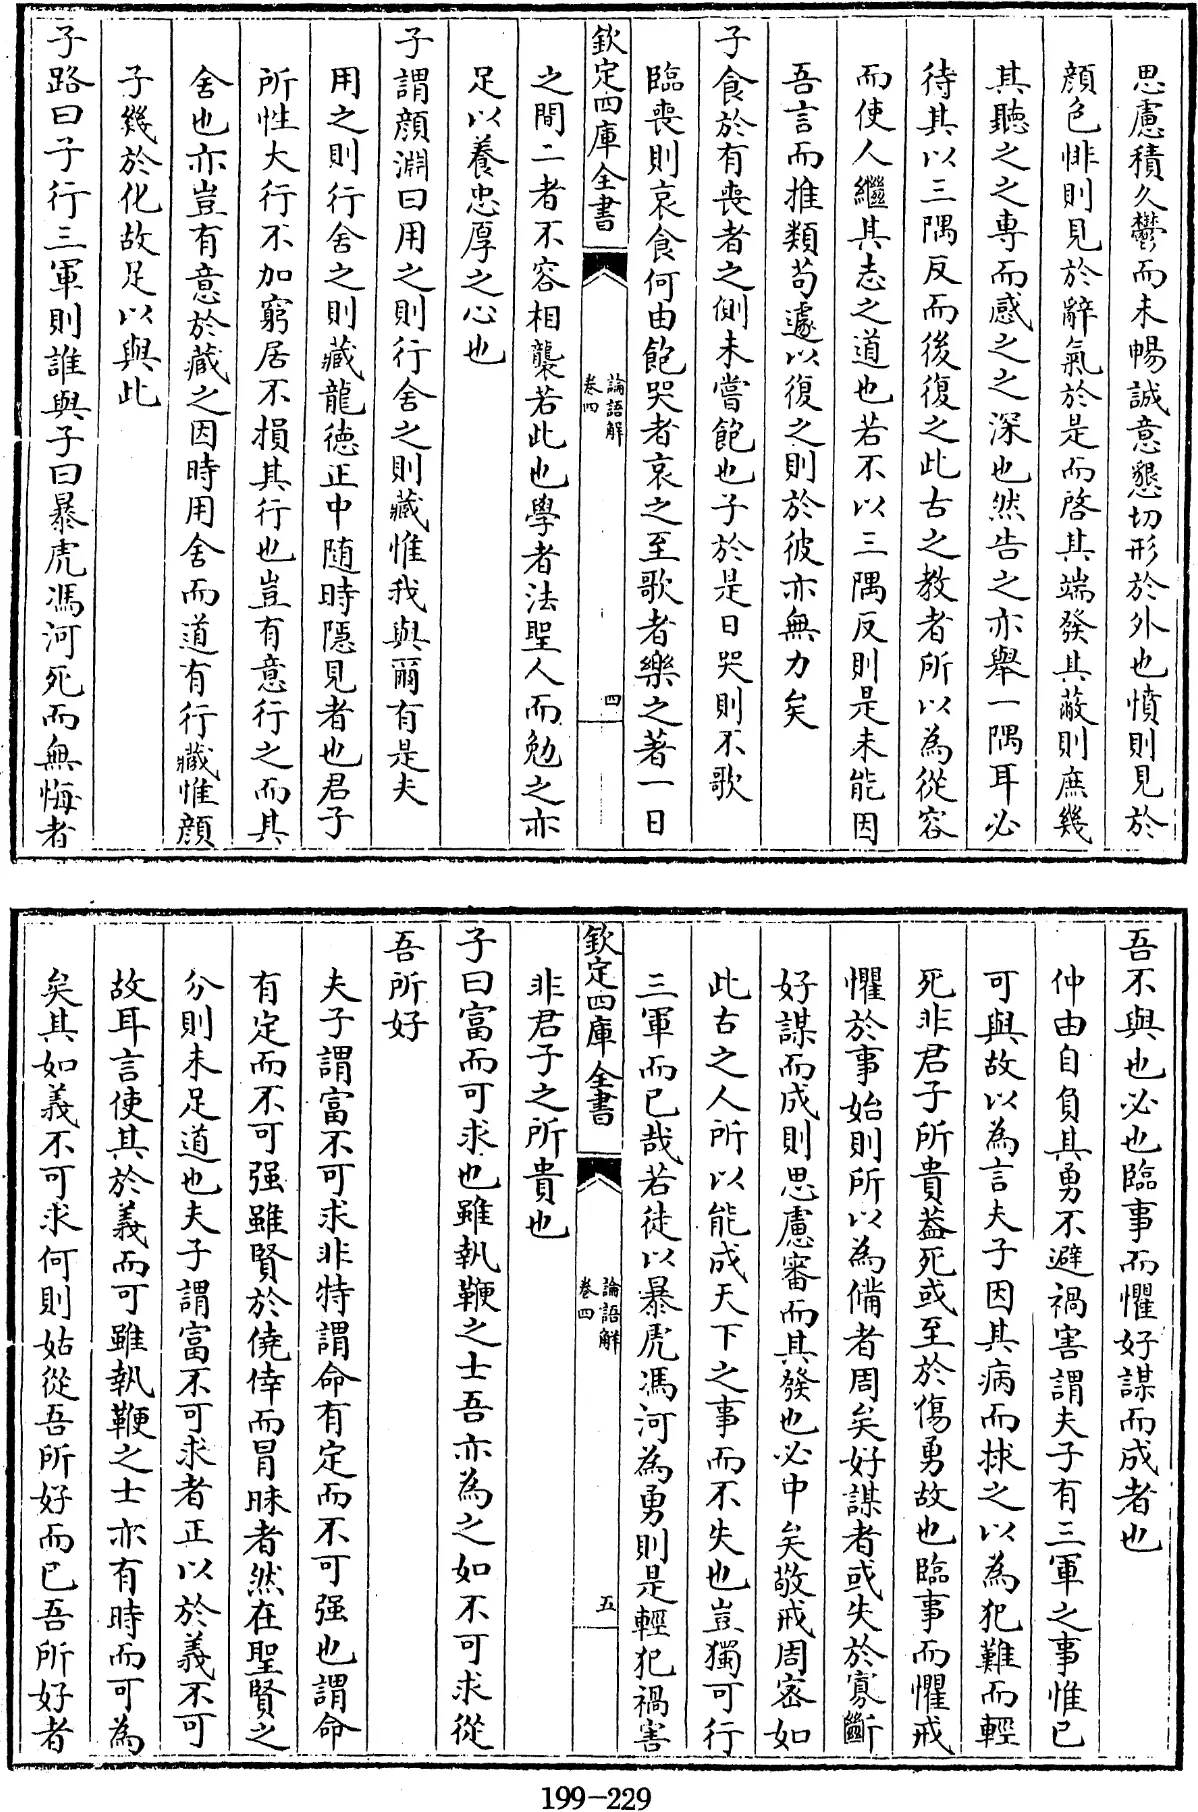 思慮積久鬱而未暢誠意懇切形於外也憤則見於
顔色悱則見於辭氣於是而啓其端發其蔽則庶幾
其聽之之專而感之之深也然告之亦舉一隅耳必
待其以三隅反而後復之此古之教者所以為從容
而使人繼其志之道也若不以三隅反則是未能因
吾言而推類苟遽以復之則於彼亦無力矣
子食於有喪者之側未嘗飽也子於是日哭則不歌
臨喪則哀食何由飽哭者哀之至歌者樂之著一日
欽定四庫全書
論語解
卷四
四
之間二者不容相襲若此也學者法聖人而勉之亦
足以養忠厚之心也
子謂顔淵曰用之則行舍之則藏惟我與爾有是夫
用之則行舍之則藏龍德正中随時隱見者也君子
所性大行不加窮居不損其行也豈有意行之而其
舍也亦豈有意於藏之因時用舍而道有行藏惟顔
子幾於化故足以與此
子路曰子行三軍則誰與子曰暴虎馮河死而無悔者
吾不與也必也臨事而懼好謀而成者也
仲由自負其勇不避禍害謂夫子有三軍之事惟已
可與故以為言夫子因其病而捄之以為犯難而輕
死非君子所貴葢死或至於傷勇故也臨事而懼戒
懼於事始則所以為備者周矣好謀者或失於寡斷
好謀而成則思慮審而其發也必中矣敬戒周密如
此古之人所以能成天下之事而不失也豈獨可行
三軍而已哉若徒以暴虎馮河為勇則是輕犯禍害
欽定四庫全書
論語解
卷四
五
非君子之所貴也
子曰富而可求也雖執鞭之士吾亦為之如不可求從
吾所好
夫子謂富不可求非特謂命有定而不可强也謂命
有定而不可强雖賢於僥倖而冒昧者然在聖賢之
分則未足道也夫子謂富不可求者正以於義不可
故耳言使其於義而可雖執鞭之士亦有時而可為
矣其如義不可求何則姑從吾所好而已吾所好者
199-229